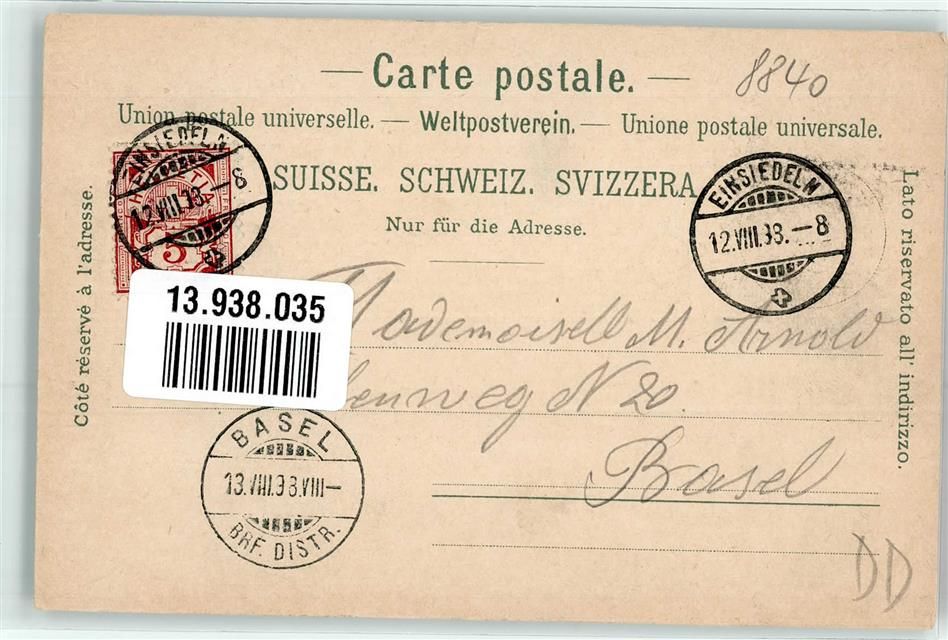 — Carte postale. —
8840
Union postale universelle. — Weltpostverein. — Unione postale universale.
SUISSE. SCHWEIZ. SVIZZERA
Nur für die Adresse.
Côté réservé à l'adresse.
Lato riservato all' indirizzo.
EINSIEDELN
12.VIII.98.–8
5
EINSIEDELN
12.VIII.98.–8
13.938.035
Mademoiselle M. Arnold
N 20.
Basel
BASEL
13.VIII.98.VIII–
BRF. DISTR.
DD